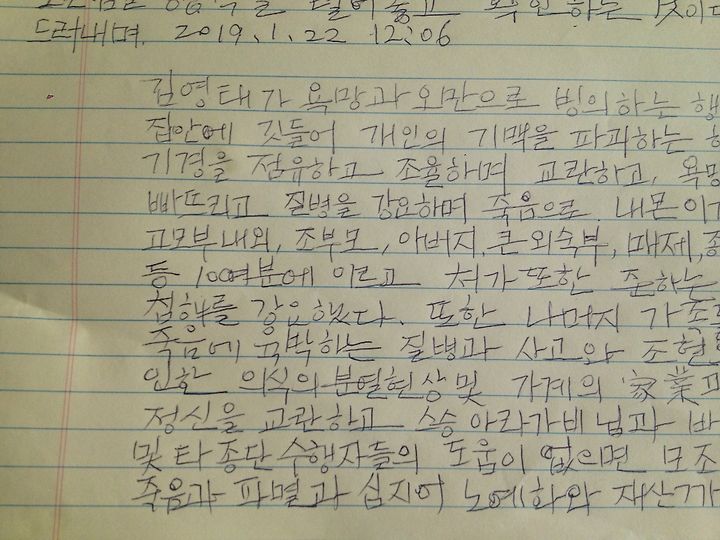 드러내며. 2019. 1. 22 12:06
김영태가 욕망과 외만으로 빙의하는 행
집안에 깃들어 개인의 기맥을 파괴하는
기경을 점유하고 조율하며 교란하고, 욕망
빠뜨리고 질병을 강요하며 죽음으로 내몬 이가
고모부내외, 조부모, 아버지, 큰외숙부, 매제,
등 100여분에 이르고 처가 또한 준하는
첩행를 강요했다. 또한 나머지 가족
죽음에 육박하는 질병과 사고와 조현
인한 의식의 분열현상 및 가계의 家業
정신을 교란하고 스승 아라가비님과
및 타 종단 수행자들의 도움이 없으면 모조
죽음과 파멸과 심지어 노예화와 재산